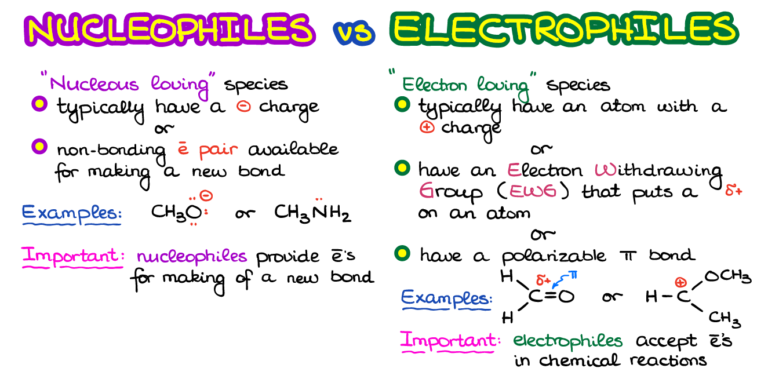 NUCLEOPHILES vs ELECTROPHILES
"Nucleous loving" species
typically have a ⊖ charge
or
non-bonding ē pair available
for making a new bond
Examples: CH3O ⊖ or CH3NH2
Important: nucleophiles provide ē's
for making of a new bond
"Electron loving" species
typically have an atom with a
⊕ charge
or
have an Electron Withdrawing
Group (EWG) that puts a δ+
on an atom
or
have a polarizable π bond
Examples: H H C=O δ+ π or H-C ⊕ OCH3 CH3
Important: electrophiles accept ē's
in chemical reactions